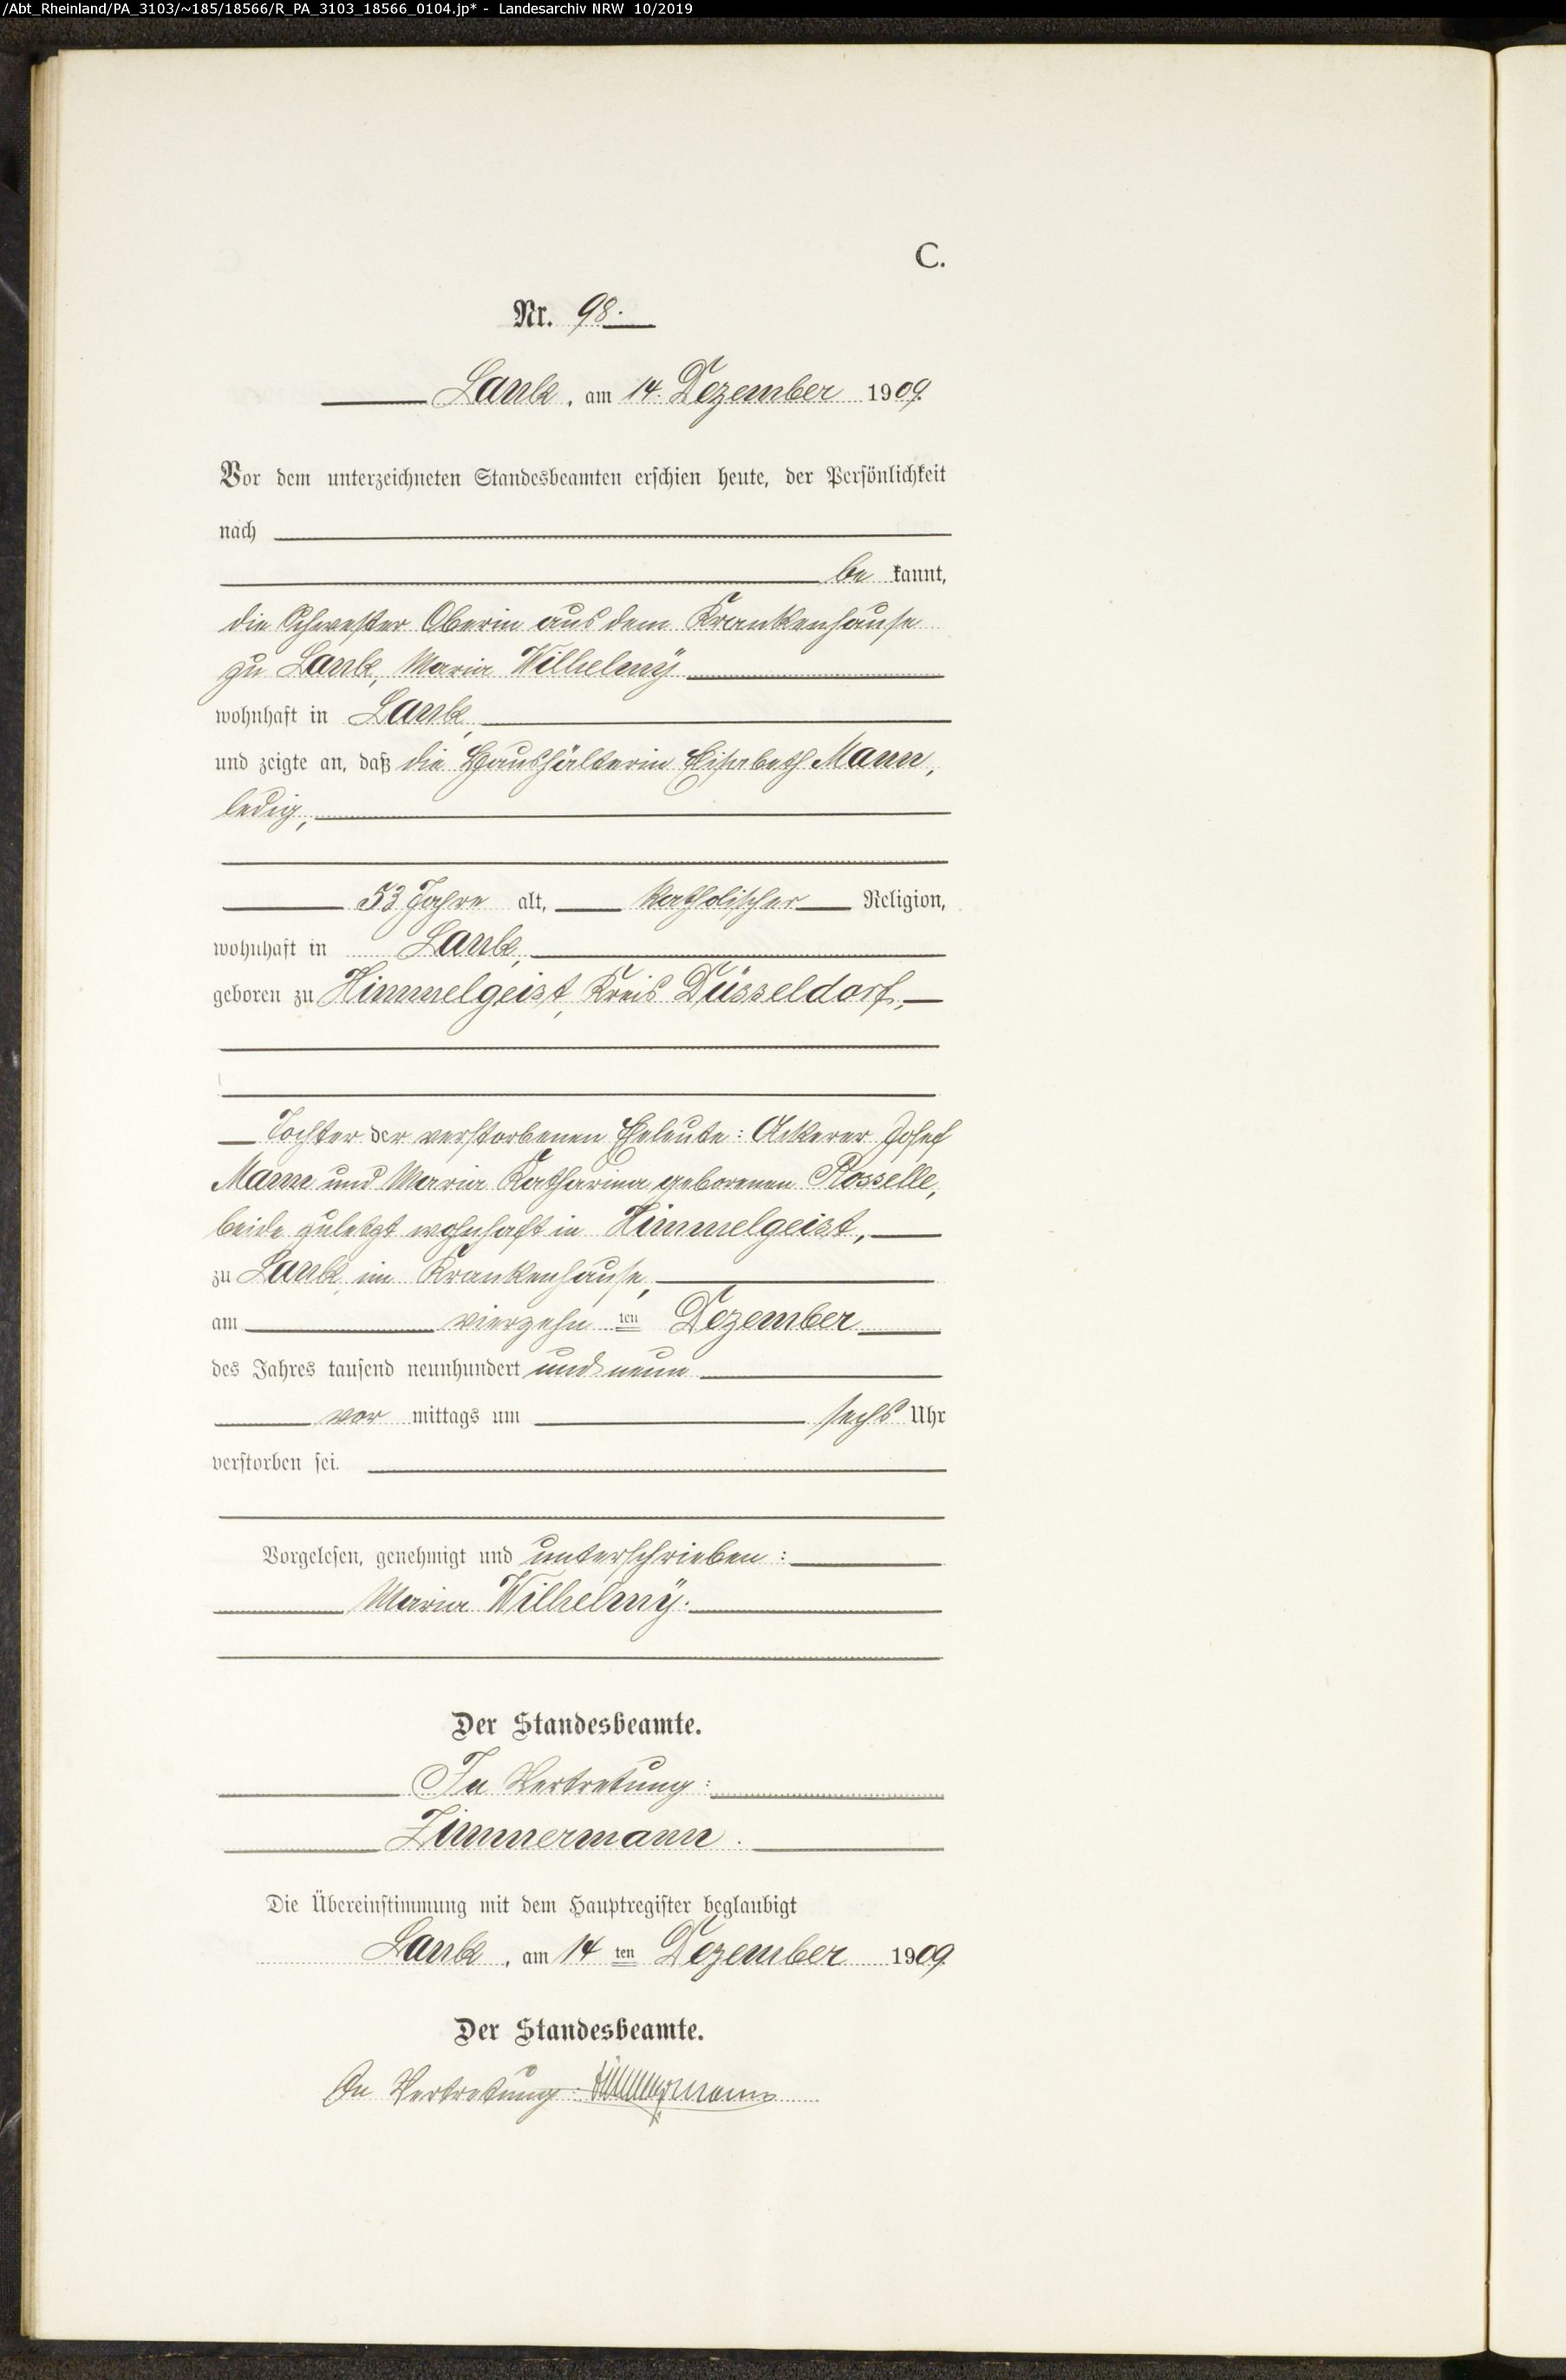 /Abt_Rheinland/PA_3103/~185/18566/R_PA_3103_18566_0104.jp* - Landesarchiv NRW 10/2019
C.
Nr. 98.
Lank, am 14. Dezember 1909.
Vor dem unterzeichneten Standesbeamten erschien heute, der Persönlichkeit
nach
be kannt,
die Schwester Oberin aus dem Krankenhause
zu Lank, Maria Wilhelmÿ
wohnhaft in Lank,
und zeigte an, daß die Haushälterin Elisabeth Mann,
ledig,
53 Jahre alt, katholischer Religion,
wohnhaft in Lank,
geboren zu Himmelgeist, Kreis Düsseldorf,
Tochter der verstorbenen Eheleute: Ackerer Josef
Mann und Maria Katharina geborenen Rosselle,
beide zuletzt wohnhaft in Himmelgeist,
zu Lank, im Krankenhause,
am vierzehn ten Dezember
des Jahres tausend neunhundert und neun
vor mittags um sechs Uhr
verstorben sei.
Vorgelesen, genehmigt und unterschrieben:
Maria Wilhelmÿ.
Der Standesbeamte.
In Vertretung:
Zimmermann.
Die Übereinstimmung mit dem Hauptregister beglaubigt
Lank, am 14 ten Dezember 1909.
Der Standesbeamte.
In Vertretung: Zimmermann